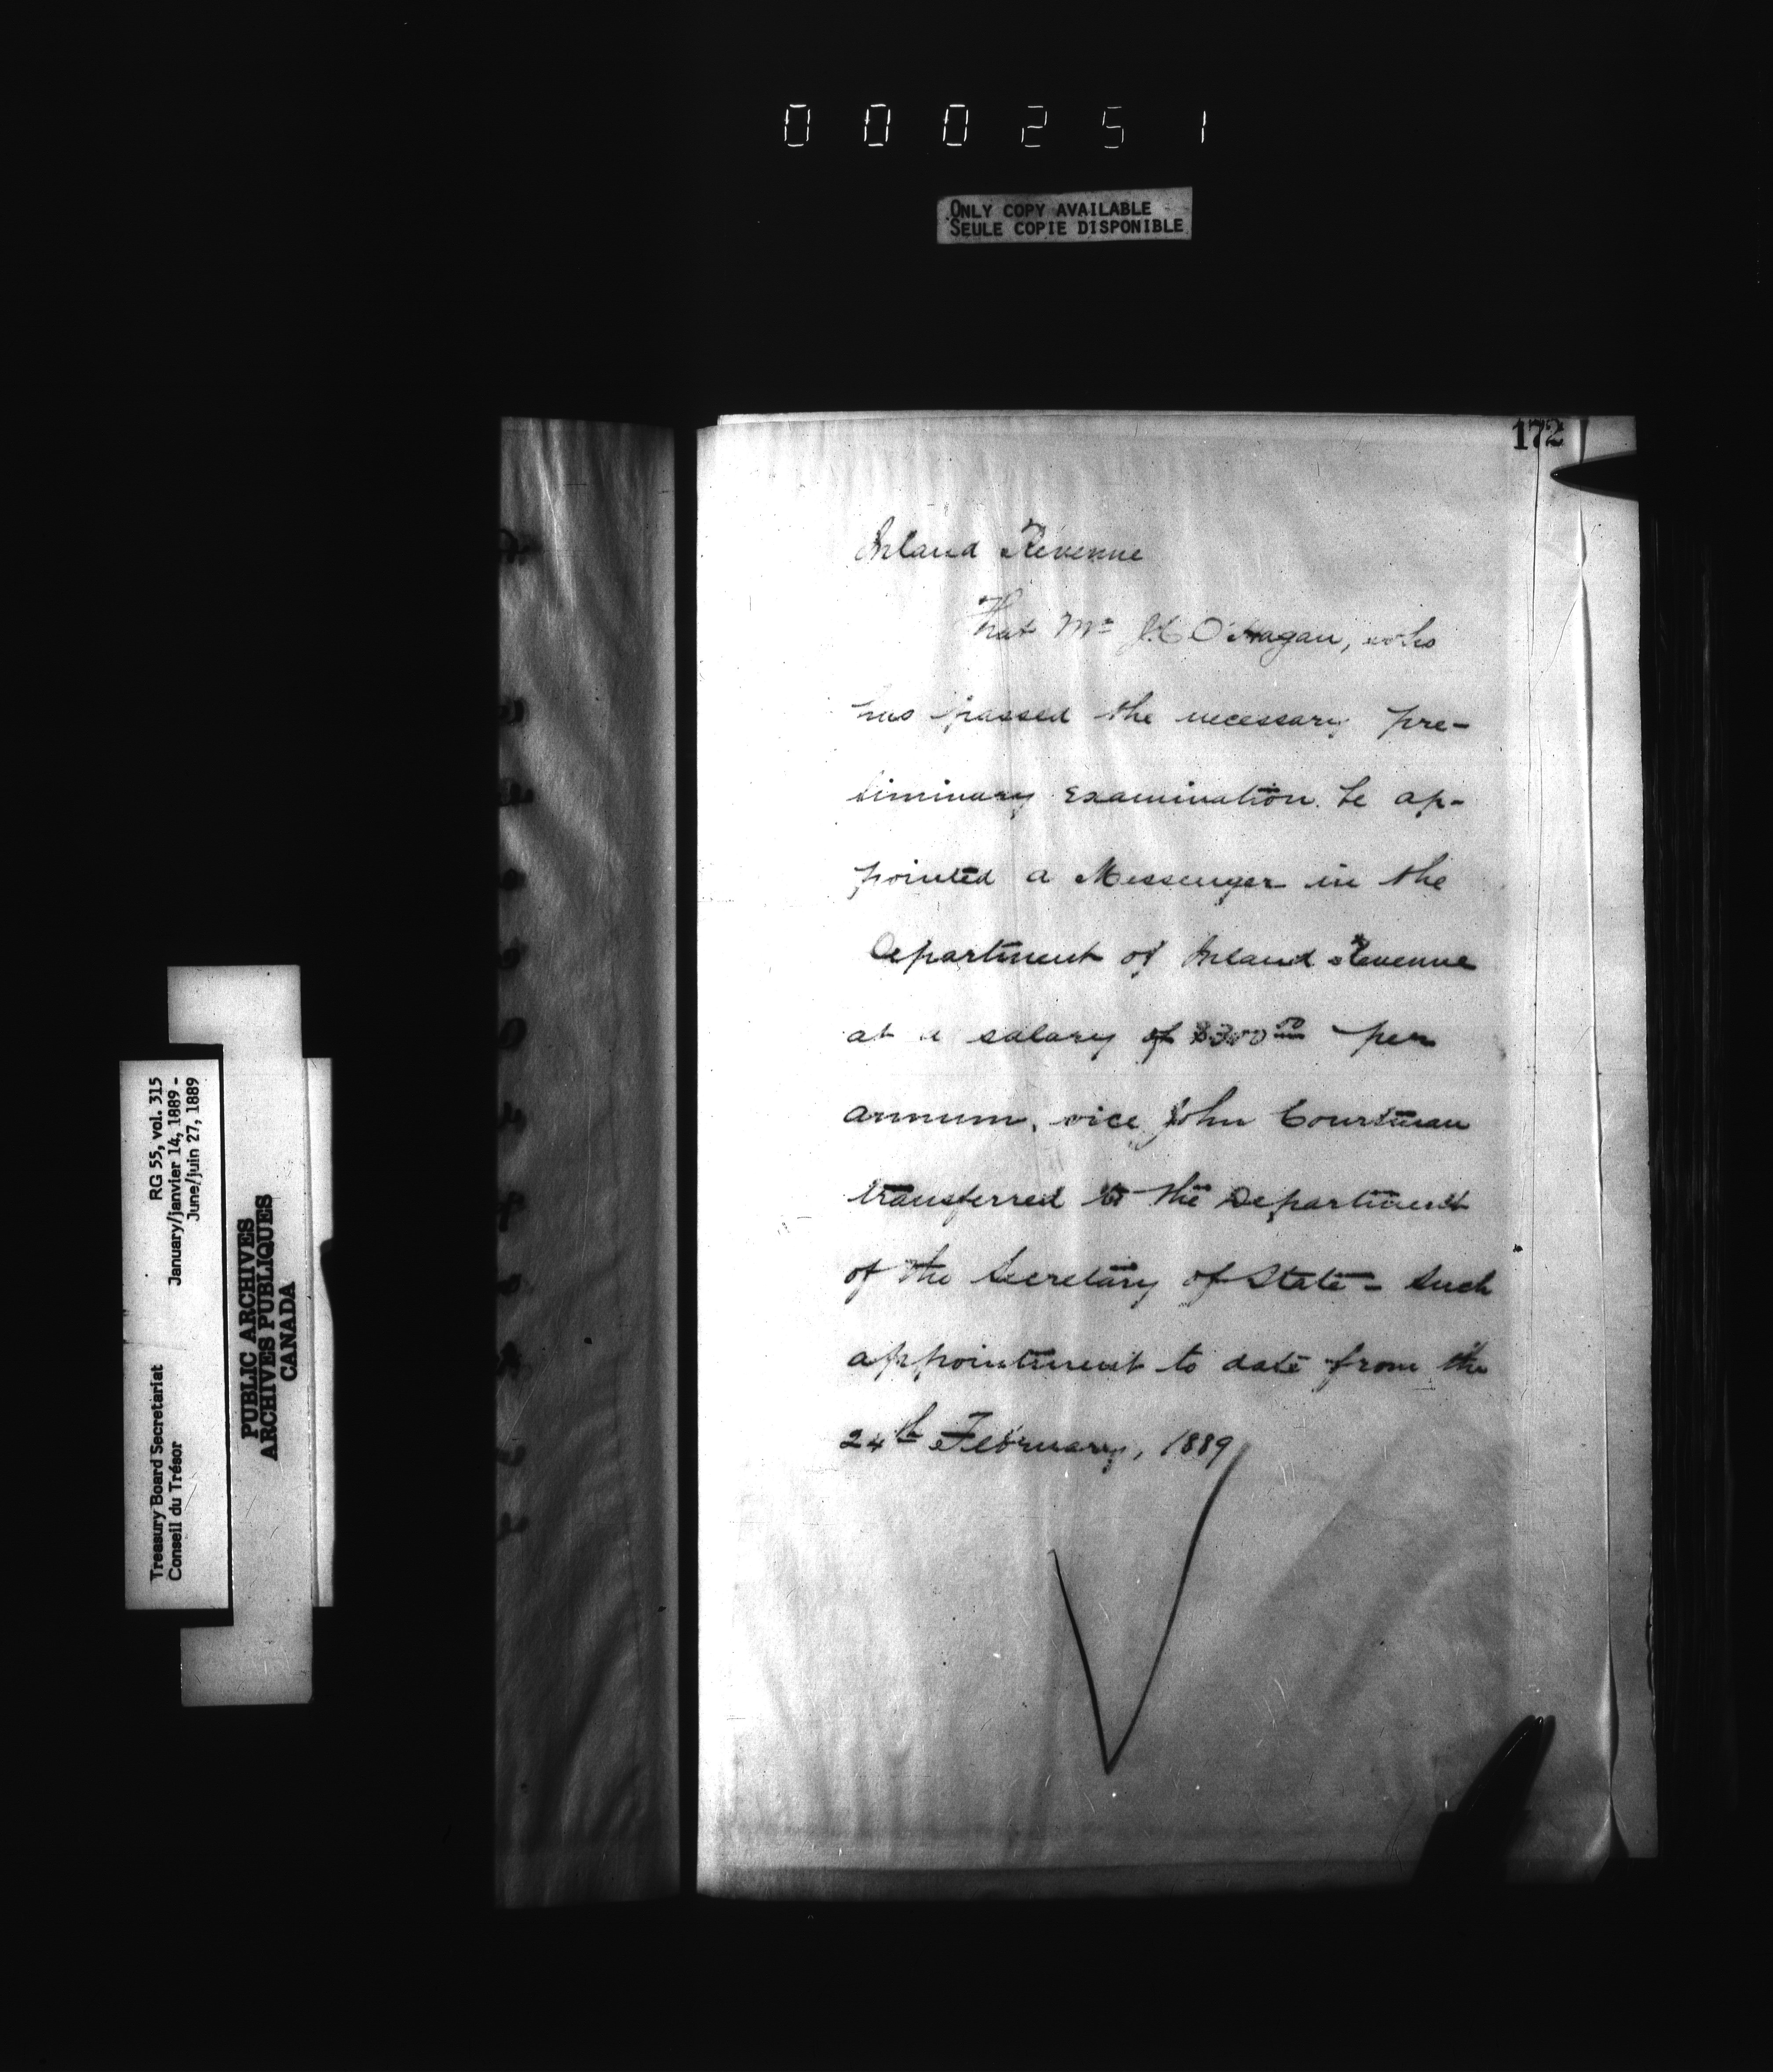 000251
ONLY COPY AVAILABLE
SEULE COPIE DISPONIBLE
172
Inland Revenue
That Mr J.C O'Hagan, who
has passed the necessary pre-
liminary examination be ap-
pointed a Messenger in the
Department of Inland Revenue
at a salary of $300 00 per
annum, vice John Courtman
transferred to the Department
of the Secretary of State - Such
appointment to date from the
24th February, 1889
RG 55, vol. 315
January/janvier 14, 1889 -
June/juin 27, 1889
Treasury Board Secretariat
Conseil du Trésor
PUBLIC ARCHIVES
ARCHIVES PUBLIQUES
CANADA